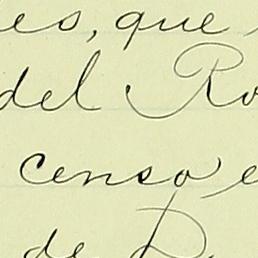 es, que
del Ro
censo e
de